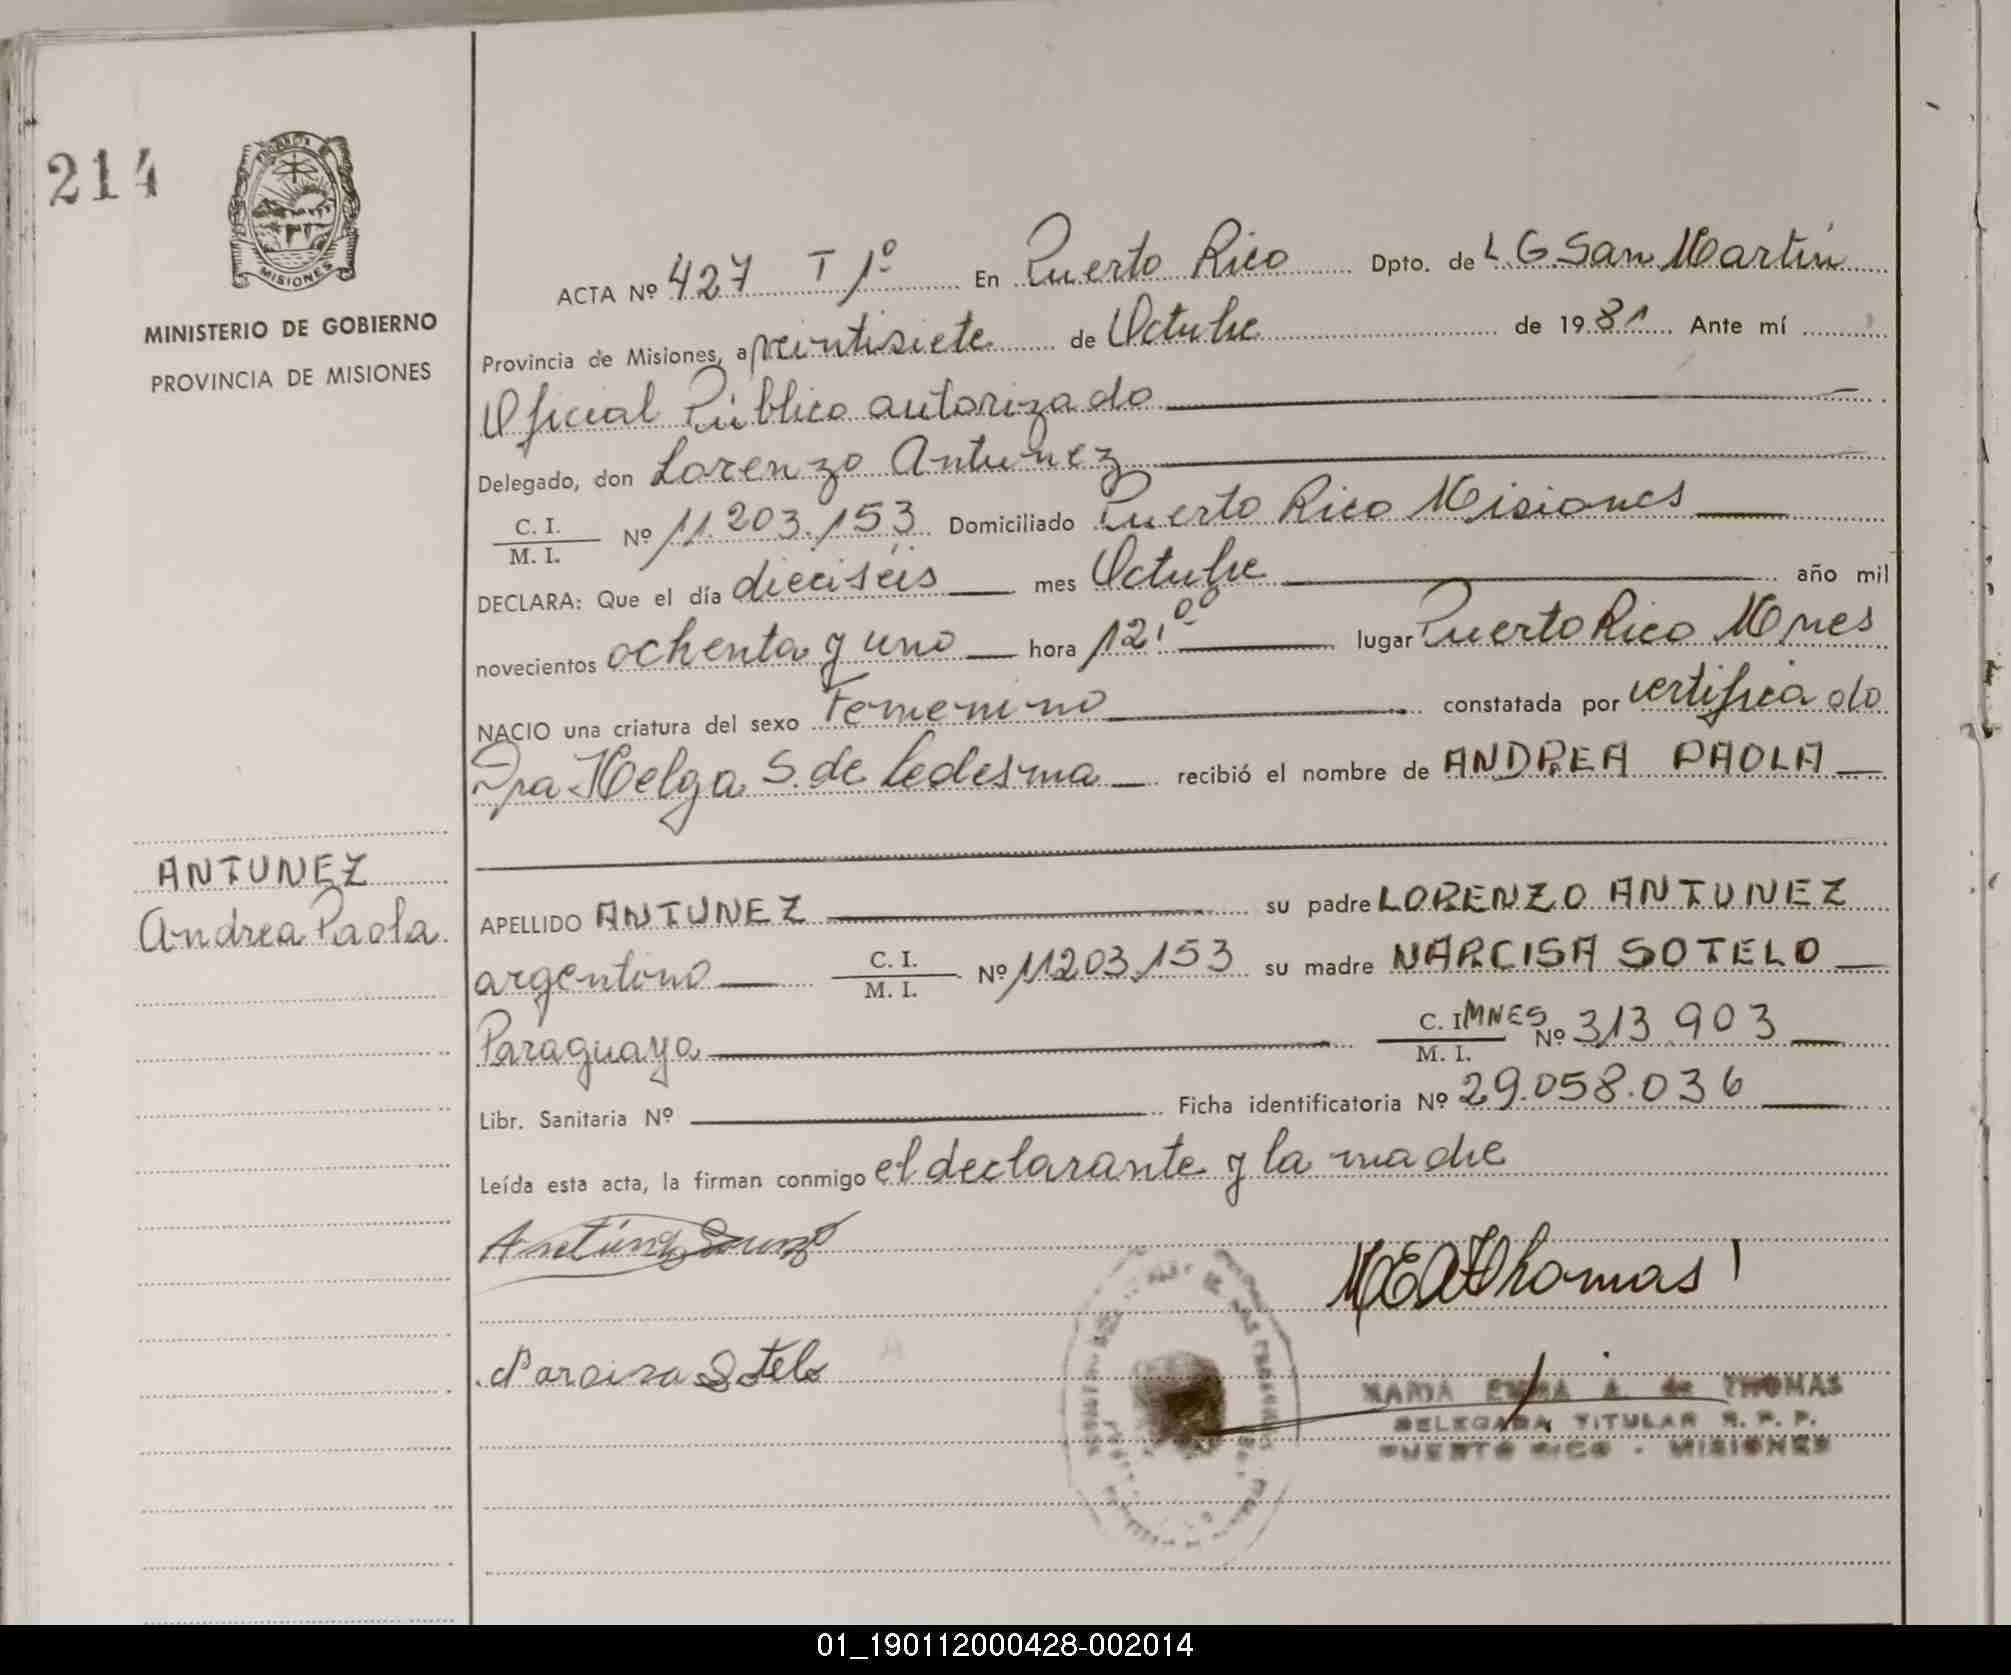 214
MISIONES
MINISTERIO DE GOBIERNO
PROVINCIA DE MISIONES
ANTUNEZ
Andrea Paola
ACTA Nº 427 T 1º En Puerto Rico Dpto. de L G San Martín
Provincia de Misiones, a veintisiete de Octubre de 1981 Ante mí
Oficial Público autorizado
Delegado, don Lorenzo Antunez
C. I.
M. I. Nº 11.203.153 Domiciliado Puerto Rico Misiones
DECLARA: Que el día dieciséis mes Octubre año mil
novecientos ochenta y uno hora 12,00 lugar Puerto Rico Mnes
NACIO una criatura del sexo Femenino constatada por certificado
Dra Helga S. de Ledesma recibió el nombre de ANDREA PAOLA
APELLIDO ANTUNEZ su padre LORENZO ANTUNEZ
argentino C. I.
M. I. Nº 11203.153 su madre NARCISA SOTELO
Paraguaya C. I. MNES
M. I. Nº 313 903
Libr. Sanitaria Nº Ficha identificatoria Nº 29.058.036
Leída esta acta, la firman conmigo el declarante y la madre
MEAThomas
Narcisa Sotelo
MARIA EMMA A. de THOMAS
DELEGADA TITULAR R. P. P.
PUERTO RICO - MISIONES
01_190112000428-002014